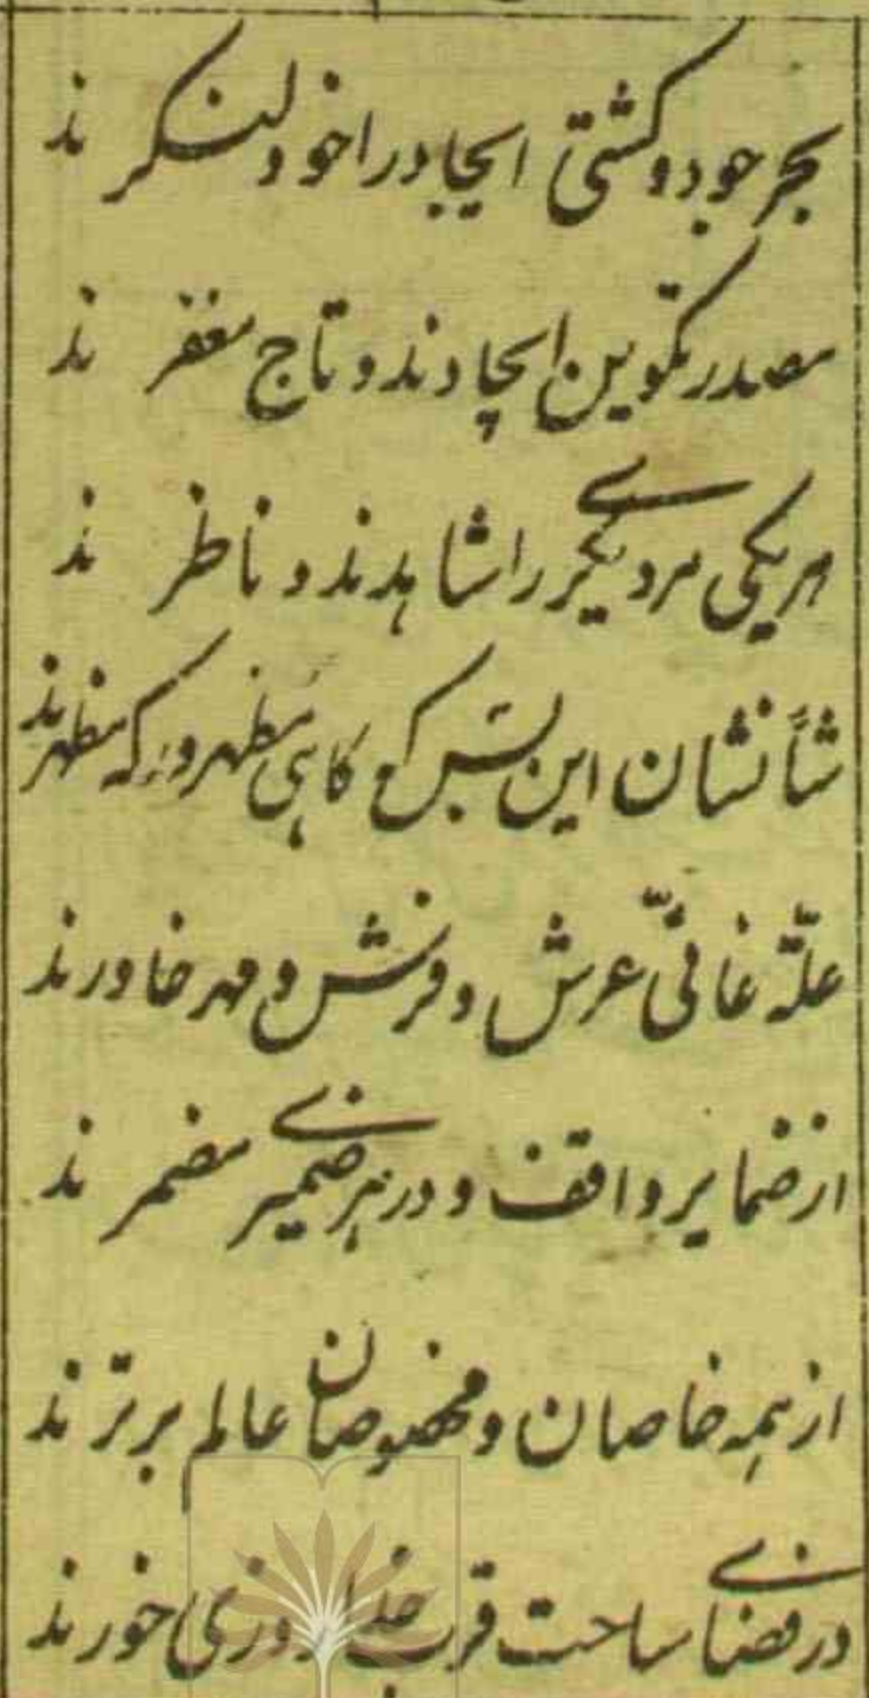 بحر جود و کشتی ایجاد را خود لنگرند
مصدر تکوین ایجادند و تاج مغفرند
هر یکی مر دیگری را شاهدند و ناظرند
شأنشان این بس که گاهی مظهر و گه مظهرند
علّة غائیّ عرش و فرش و مهر خاورند
از ضمایر واقف و در هر ضمیری مضمرند
از همه خاصان و مخصوصان عالم برترند
در فضای ساحت قرب خدا روزی خورند